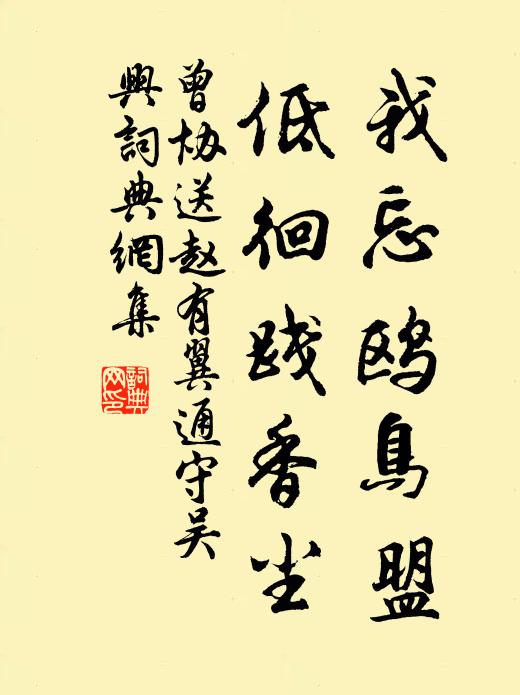 我忘鸥鳥盟
低徊践香尘
曾协送赵有翼通守吴
興詞典網集
詞典
网印